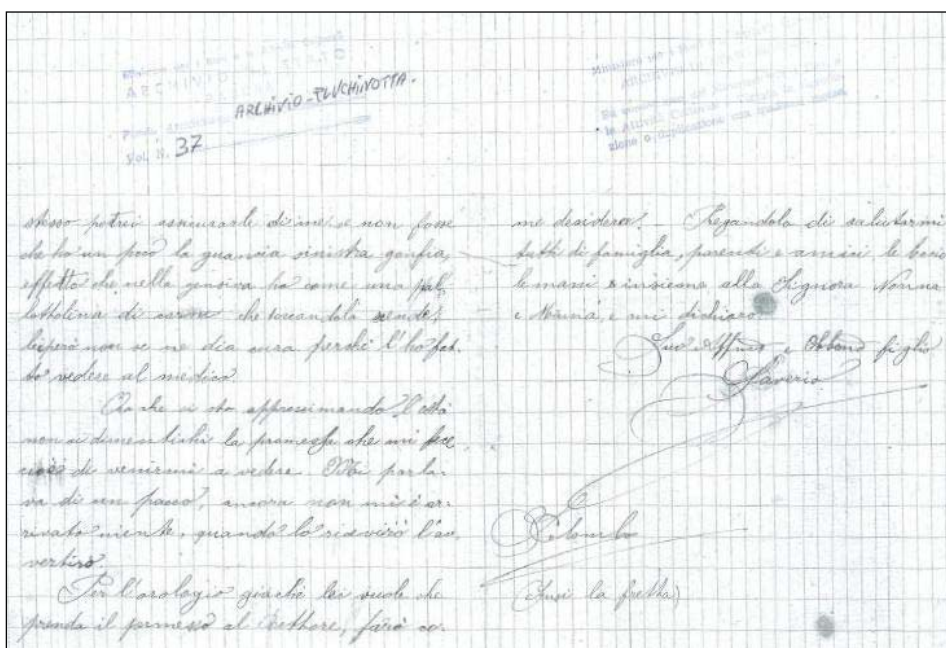 ARCHIVIO DI STATO
ARCHIVIO-PLUCHINOTTA.
Vol. N. 37
stesso potrei assicurarle di me, se non fosse
che ho un poco la guancia sinistra gonfia,
effetto che nella gengiva ho come una pal-
lottolina di carne che toccandola
però non se ne dia cura perché l'ho fat-
to vedere al medico
Ora che si sta approssimando l'està
non si dimentichi la promessa che mi fece
cioè di venirmi a vedere. Mi parla-
va di un pacco, ancora non mi è ar-
rivato niente, quando lo riceverò l'av-
vertirò.
Per l'orologio giacché lei vuole che
prenda il permesso al Rettore, farò co-
me desidera. Pregandola di salutarmi
tutti di famiglia, parenti e amici le bacio
le mani insieme alla Signora Nonna
e Nonna, e mi dichiaro
Suo Affmo e Obbmo figlio
Saverio
Colombo
(Scusi la fretta)